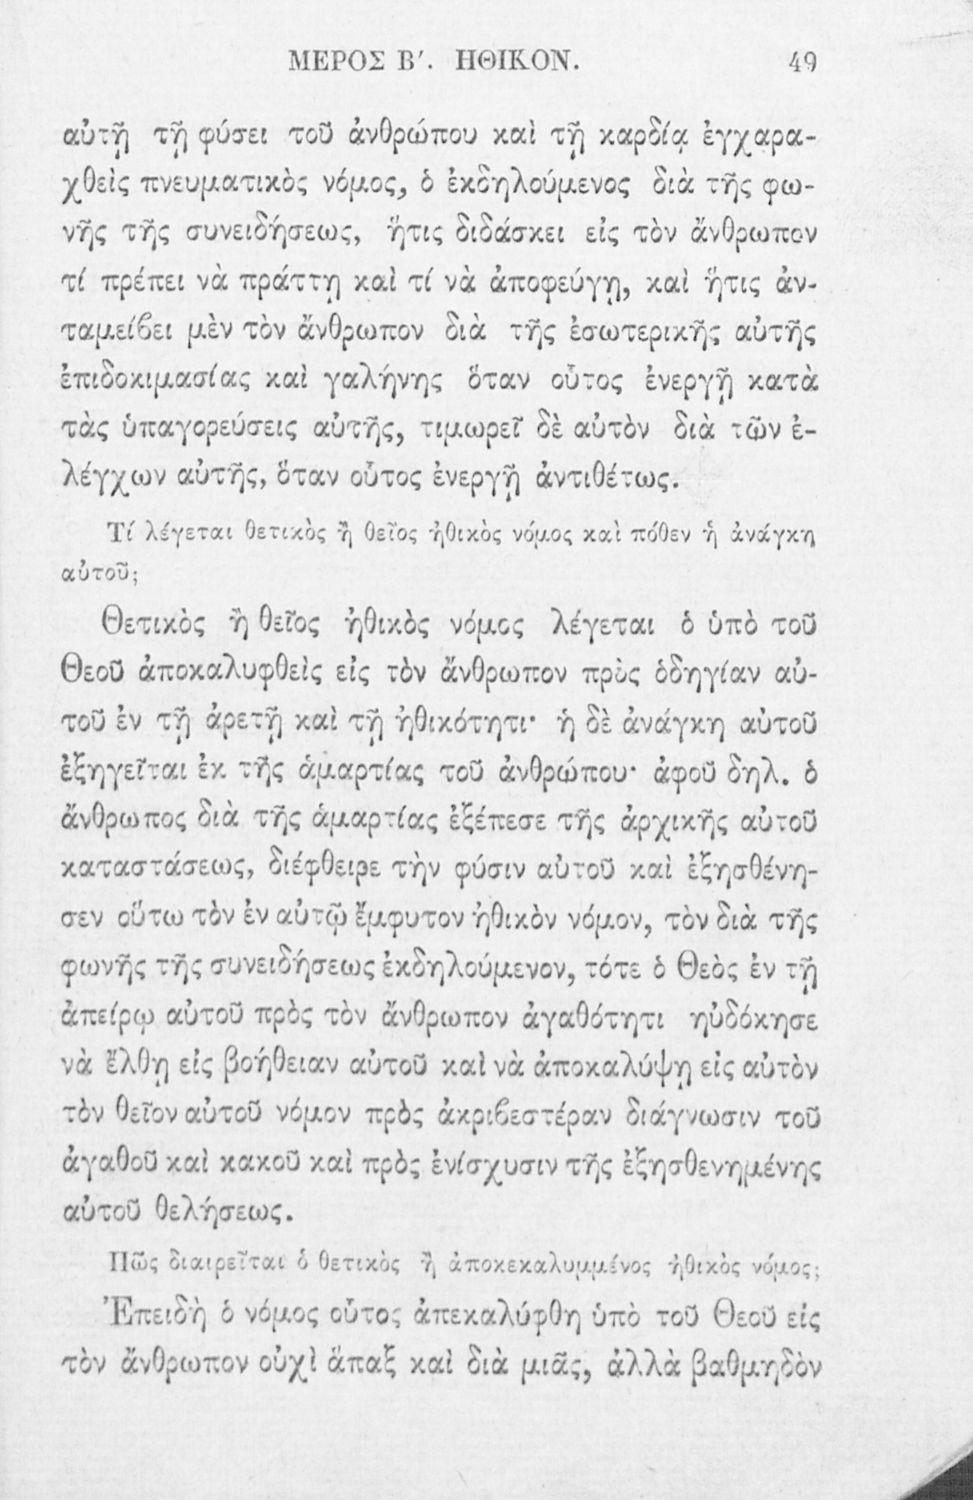 ΜΕΡΟΣ Β΄. ΗΘΙΚΟΝ. 49
αὐτῇ τῇ φύσει τοῦ ἀνθρώπου καὶ τῇ καρδίᾳ ἐγχαρα-
χθεὶς πνευματικὸς νόμος, ὁ ἐκδηλούμενος διὰ τῆς φω-
νῆς τῆς συνειδήσεως, ἥτις διδάσκει εἰς τὸν ἄνθρωπον
τί πρέπει νὰ πράττῃ καὶ τί νὰ ἀποφεύγῃ, καὶ ἥτις ἀν-
ταμείβει μὲν τὸν ἄνθρωπον διὰ τῆς ἐσωτερικῆς αὐτῆς
ἐπιδοκιμασίας καὶ γαλήνης ὅταν οὗτος ἐνεργῇ κατὰ
τὰς ὑπαγορεύσεις αὐτῆς, τιμωρεῖ δὲ αὐτὸν διὰ τῶν ἐ-
λέγχων αὐτῆς, ὅταν οὗτος ἐνεργῇ ἀντιθέτως.
Τί λέγεται θετικὸς ἢ θεῖος ἠθικὸς νόμος καὶ πόθεν ἡ ἀνάγκη
αὐτοῦ;
Θετικὸς ἢ θεῖος ἠθικὸς νόμος λέγεται ὁ ὑπὸ τοῦ
Θεοῦ ἀποκαλυφθεὶς εἰς τὸν ἄνθρωπον πρὸς ὁδηγίαν αὐ-
τοῦ ἐν τῇ ἀρετῇ καὶ τῇ ἠθικότητι· ἡ δὲ ἀνάγκη αὐτοῦ
ἐξηγεῖται ἐκ τῆς ἁμαρτίας τοῦ ἀνθρώπου· ἀφοῦ δηλ. ὁ
ἄνθρωπος διὰ τῆς ἁμαρτίας ἐξέπεσε τῆς ἀρχικῆς αὐτοῦ
καταστάσεως, διέφθειρε τὴν φύσιν αὐτοῦ καὶ ἐξησθένη-
σεν οὕτω τὸν ἐν αὐτῷ ἔμφυτον ἠθικὸν νόμον, τὸν διὰ τῆς
φωνῆς τῆς συνειδήσεως ἐκδηλούμενον, τότε ὁ Θεὸς ἐν τῇ
ἀπείρῳ αὐτοῦ πρὸς τὸν ἄνθρωπον ἀγαθότητι ηὐδόκησε
νὰ ἔλθῃ εἰς βοήθειαν αὐτοῦ καὶ νὰ ἀποκαλύψῃ εἰς αὐτὸν
τὸν θεῖον αὐτοῦ νόμον πρὸς ἀκριβεστέραν διάγνωσιν τοῦ
ἀγαθοῦ καὶ κακοῦ καὶ πρὸς ἐνίσχυσιν τῆς ἐξησθενημένης
αὐτοῦ θελήσεως.
Πῶς διαιρεῖται ὁ θετικὸς ἢ ἀποκεκαλυμμένος ἠθικὸς νόμος;
Ἐπειδὴ ὁ νόμος οὗτος ἀπεκαλύφθη ὑπὸ τοῦ Θεοῦ εἰς
τὸν ἄνθρωπον οὐχὶ ἅπαξ καὶ διὰ μιᾶς, ἀλλὰ βαθμηδὸν